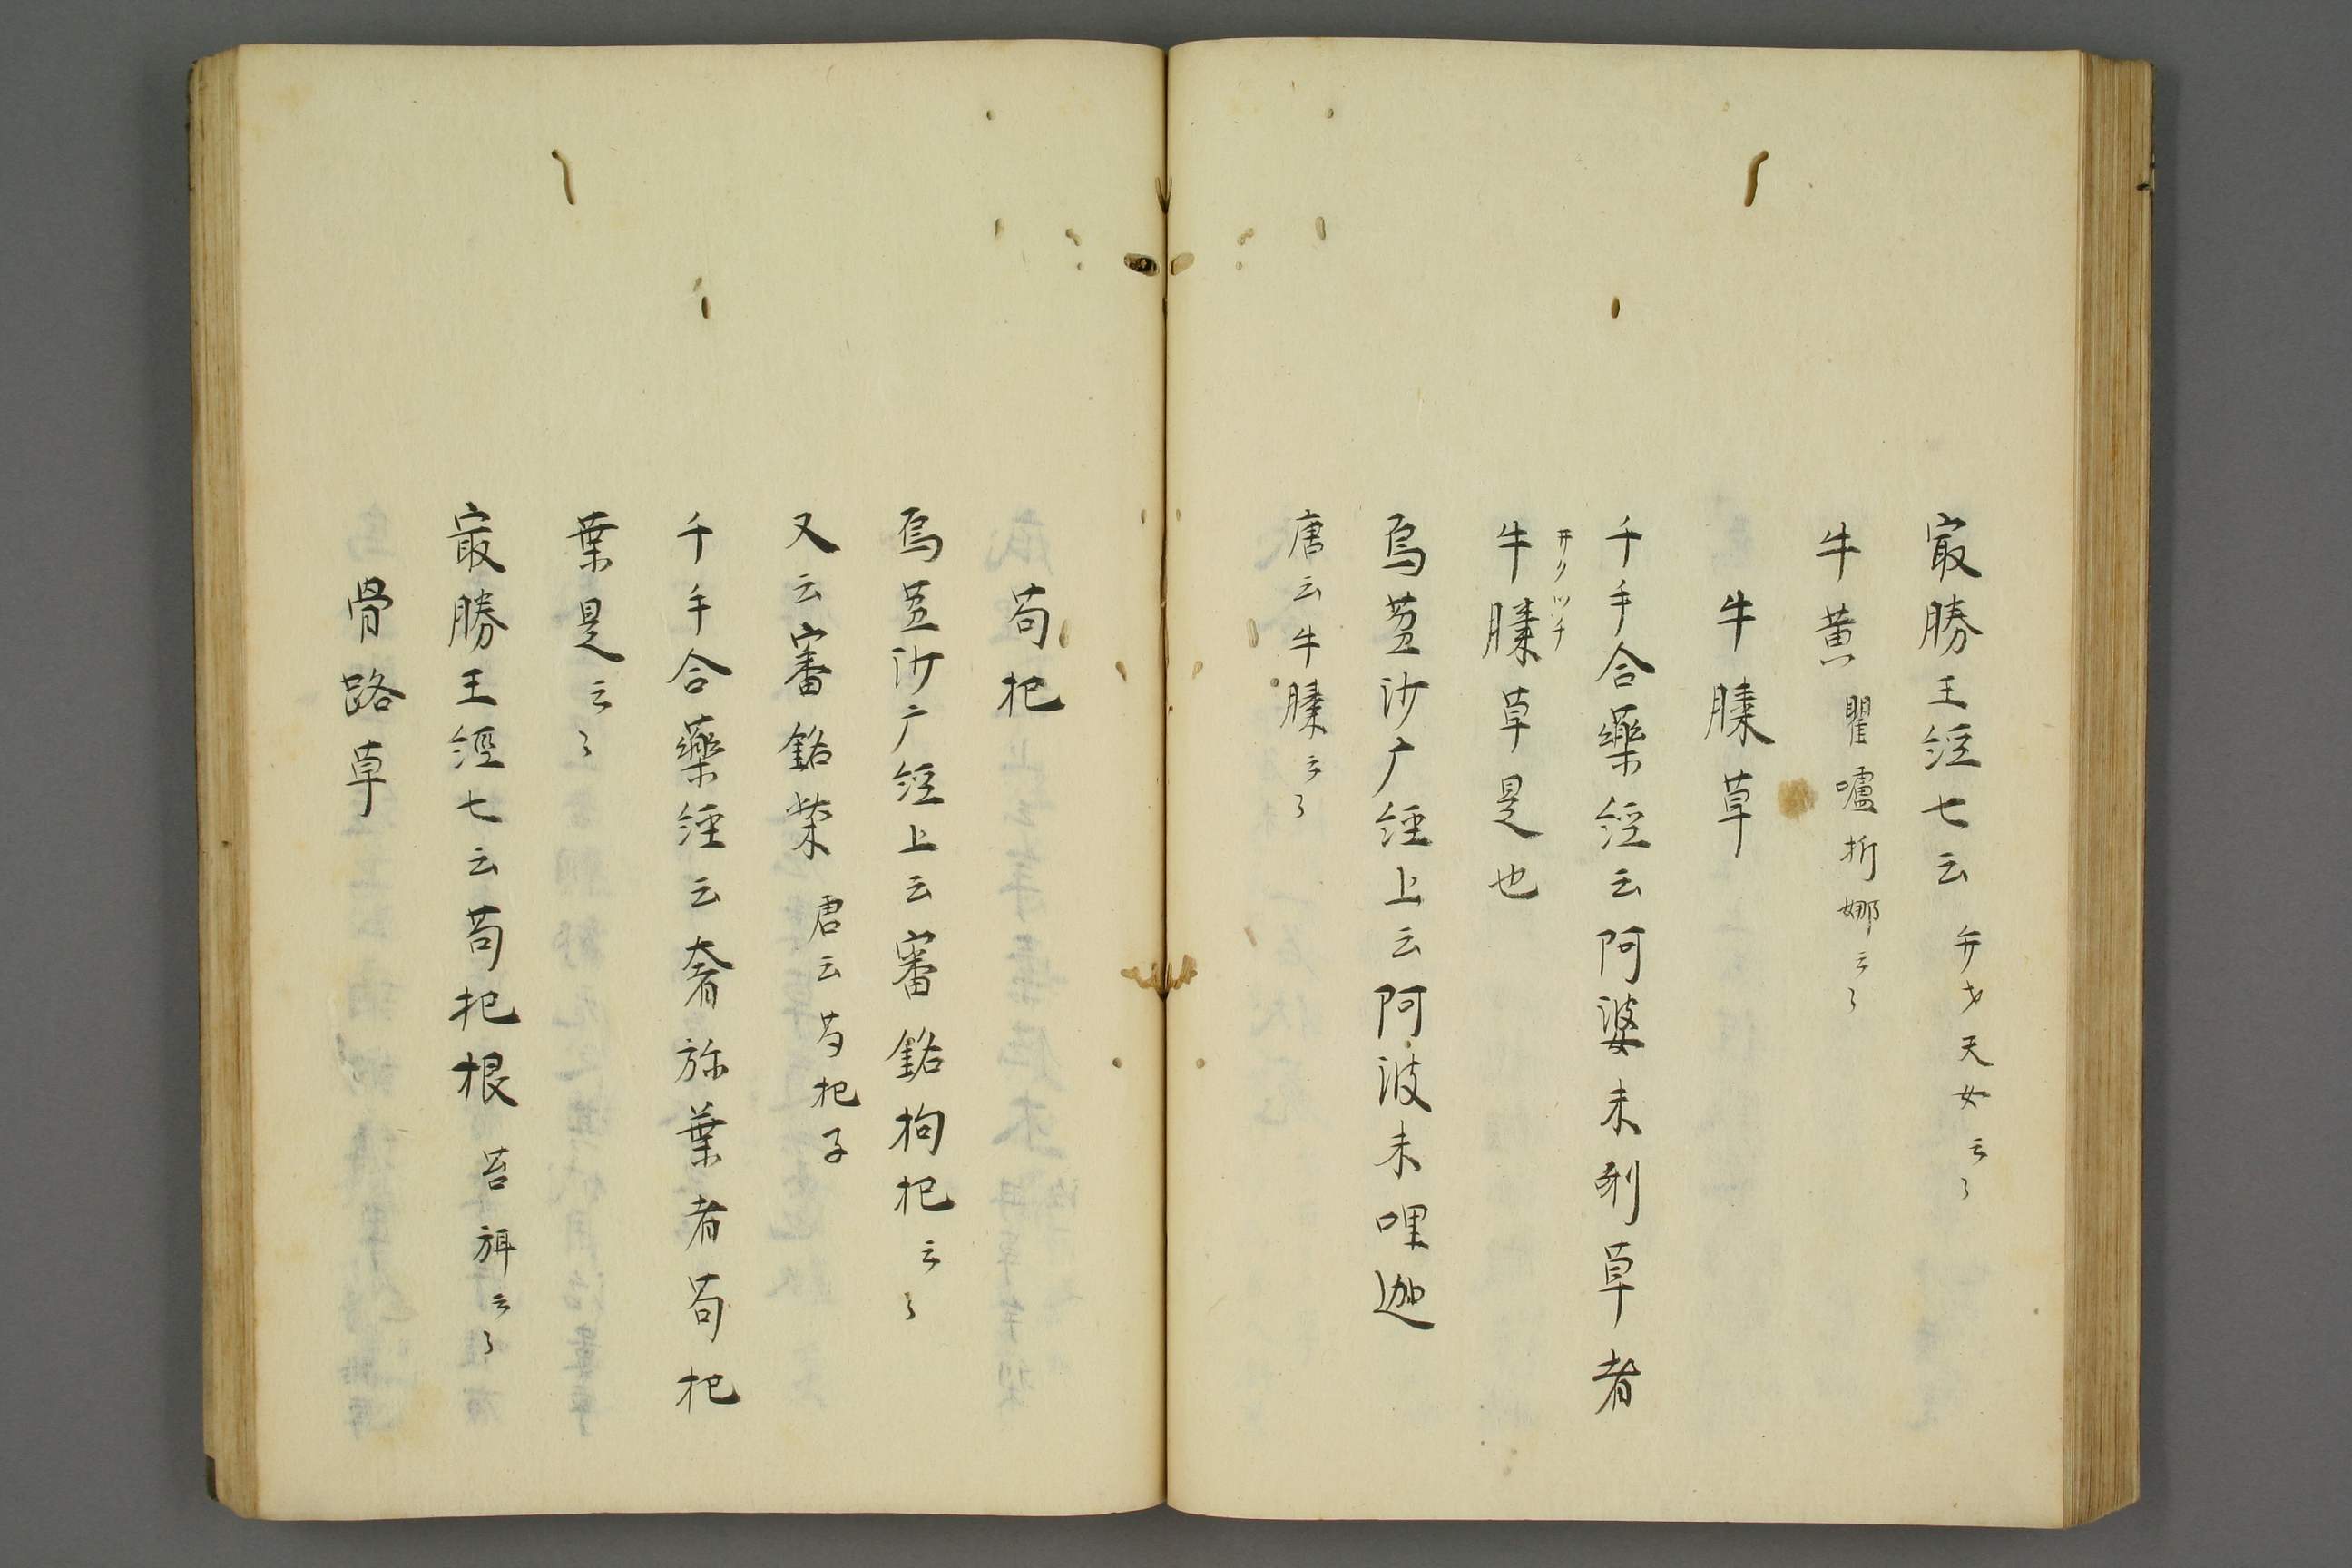 冣勝王経七云 弁才天女云々
牛黄 瞿嚧折娜云々
牛膝草
千手合藥経云阿婆末利草者
牛膝草是也
烏蒭沙广経上云阿波末哩迦
唐云牛膝云々
苟杞
烏蒭沙广経上云審銘枸杞云々
又云審銘柴 唐云苟杞子
千手合藥経云奢弥葉者苟杞
葉是云々
冣勝王経七云苟杞根 苫弭云々
骨路草